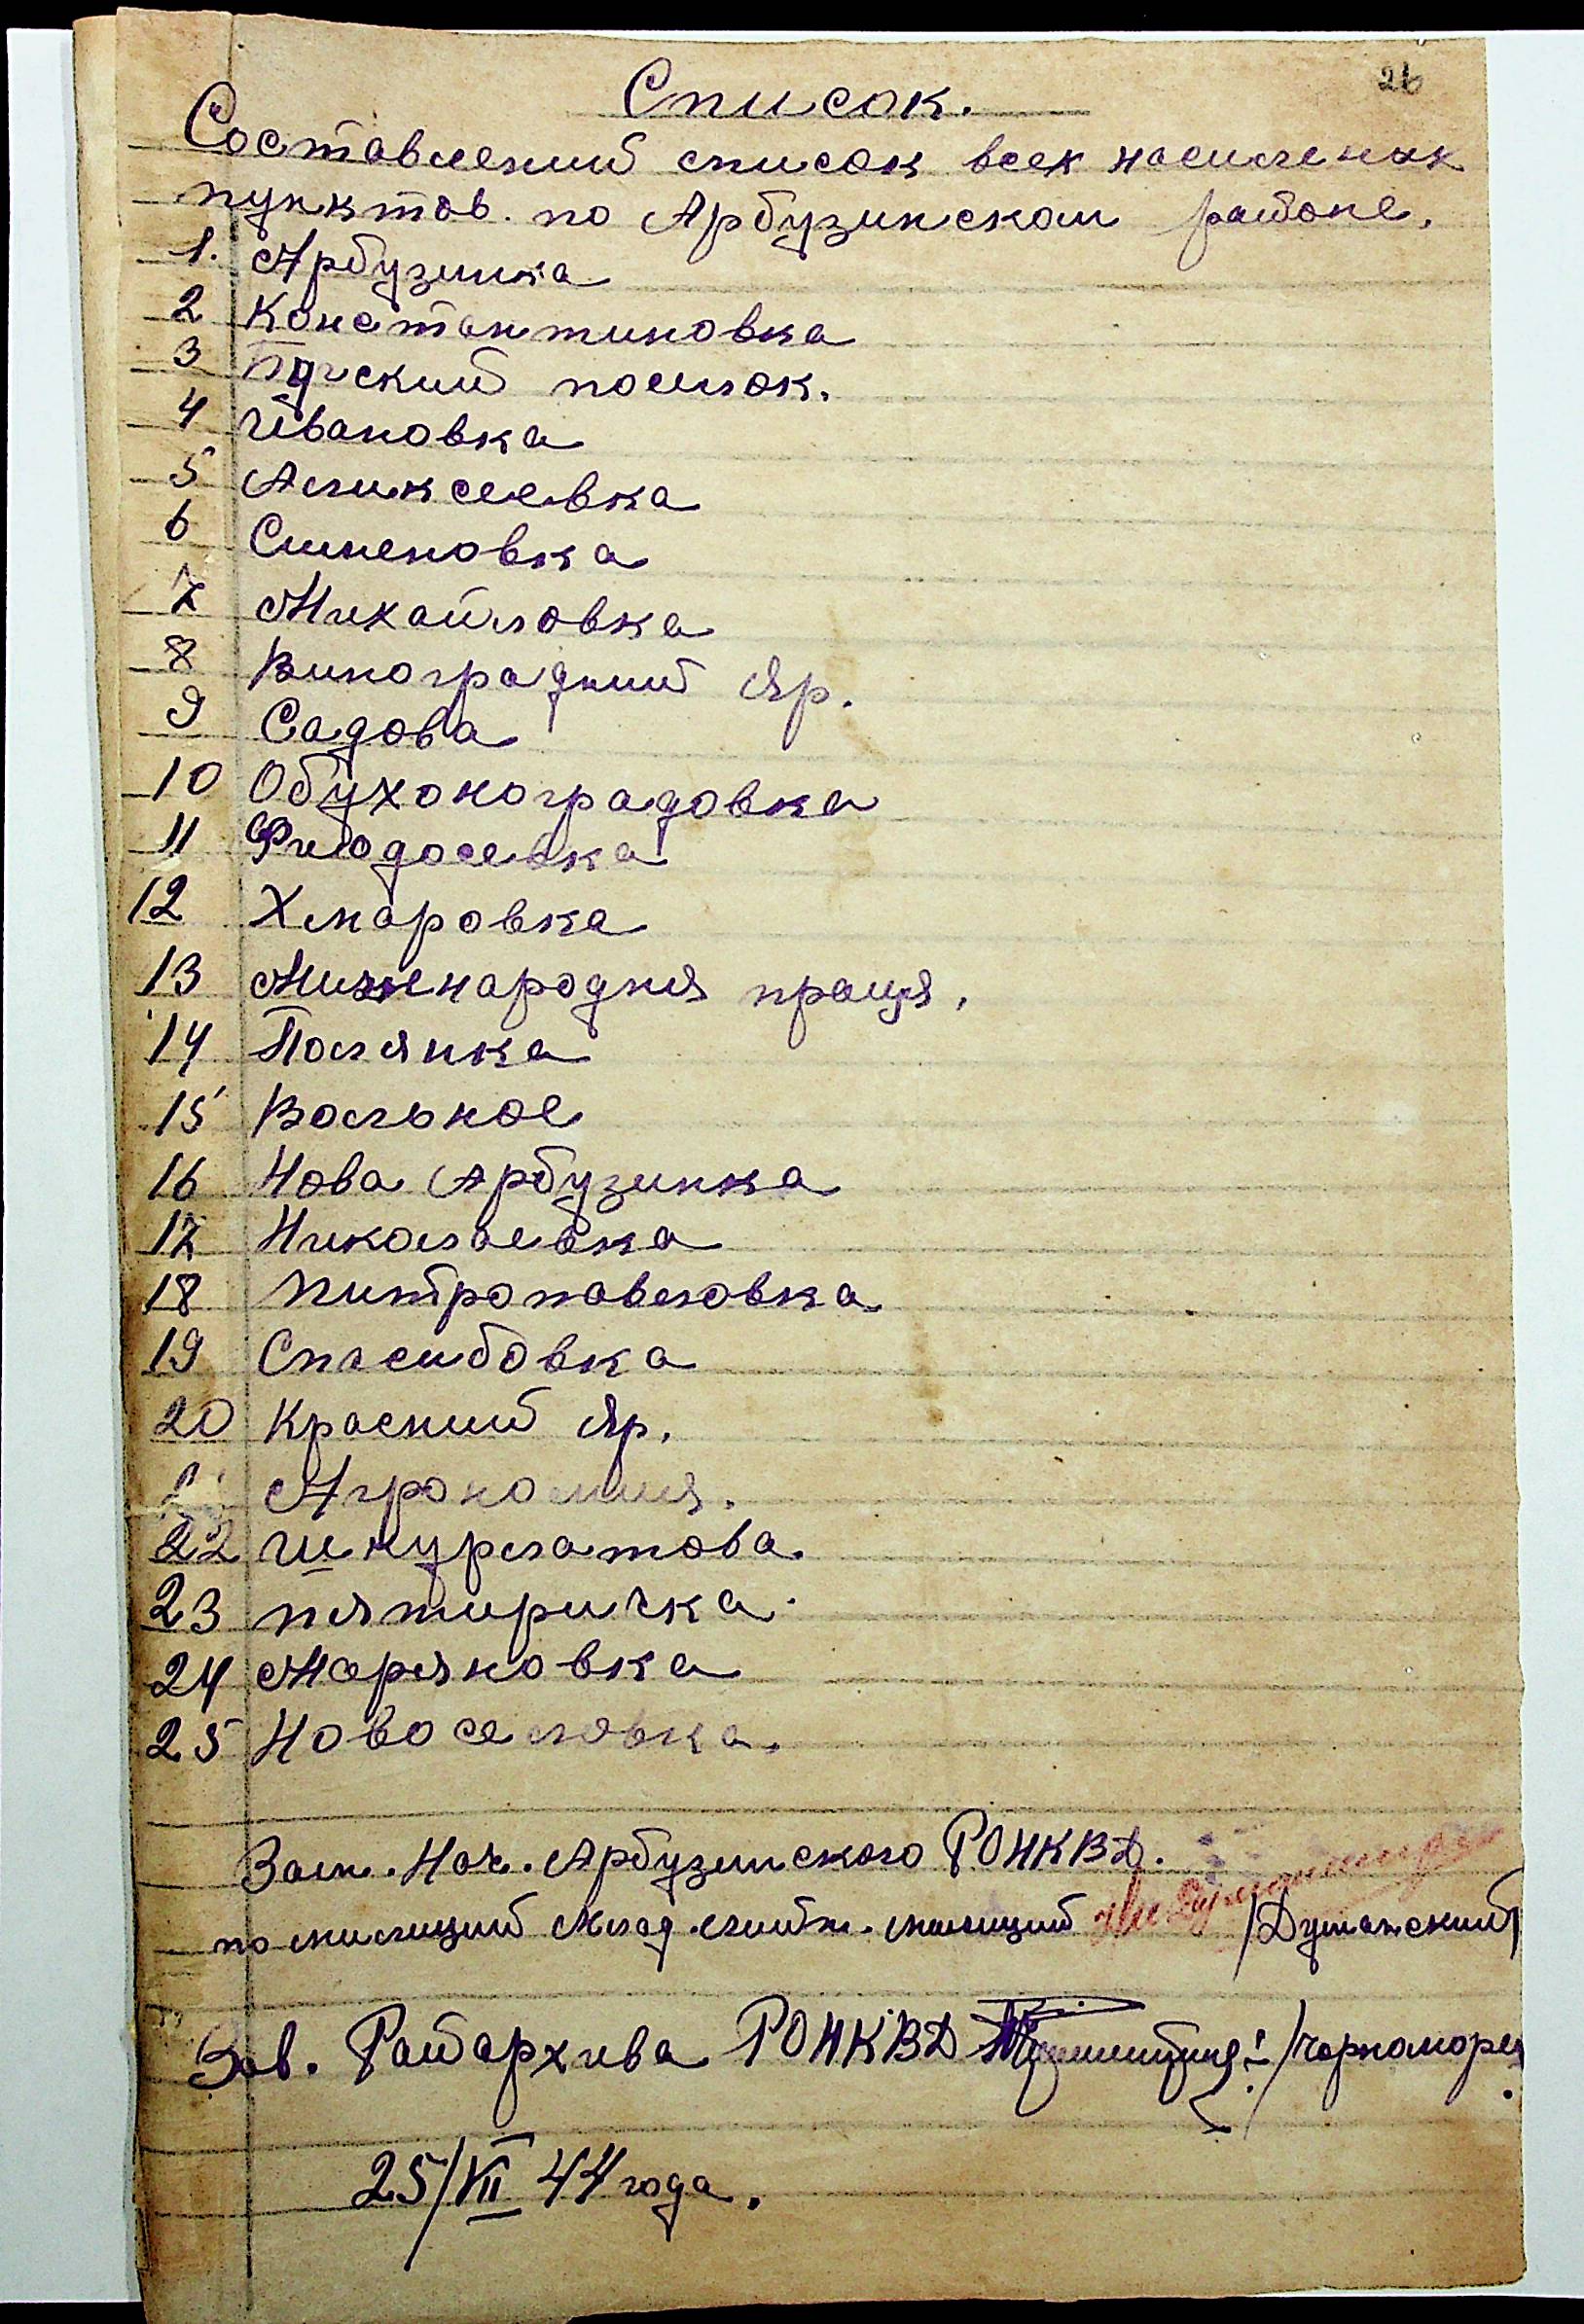 26
Список.
Составлений список всех носиленых
пунктов. по Арбузинском районе.
1. Арбузинка
2 Константиновка
3 поселок.
4 Ивановка
5 Аликсеевка
6 Сименовка
7 Михайловка
8 Виноградний Яр.
9 Садова
10 Обухоноградовка
11 Фиодосевка
12 Хмаровка
13 Миженародня праця.
14 Полянка
15 Вольное
16 Нова Арбузинка
17 Николаевка
18 Питропавловка
19 Спасибовка
20 Красний Яр.
Агрономия.
22 Шкурлатова.
23 пятиричка.
24 Маряновка
25 Новоселовка.
Зам. Нач. Арбузинского РОНКВД.
по милиций Млад. лийт. милиций /Думанский/
Зав. Райархива РОНКВД /Чорноморец
25/VII 44 года.